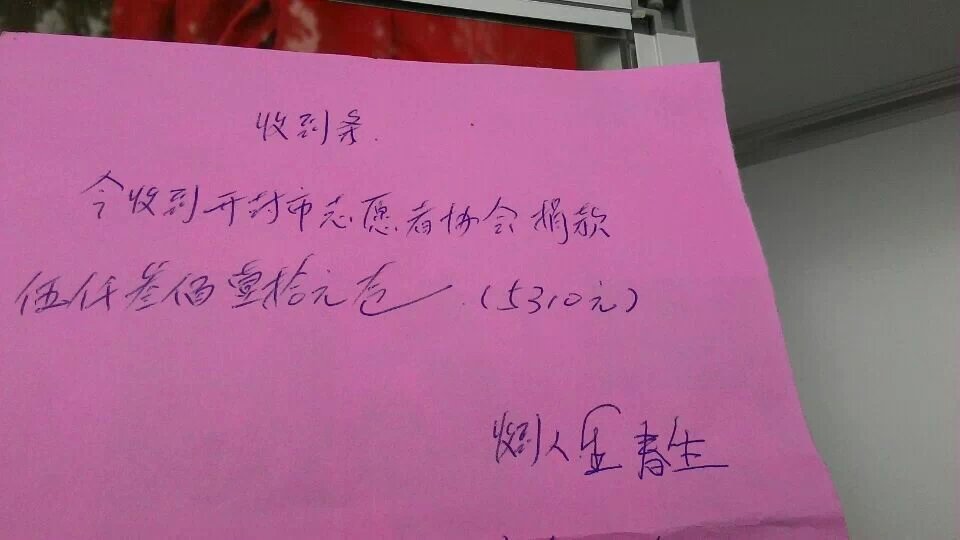 收到条.
今收到开封市志愿者协会捐款
伍仟叁佰壹拾元仓.(5310元)
收到人金春生